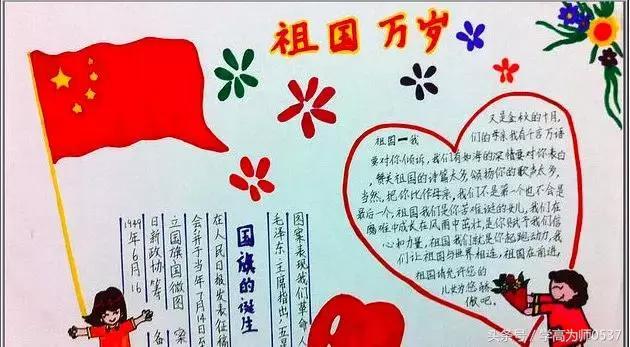 祖国万岁
又是金秋的十月，
祖国一我们的母亲我有千言万语
要对你倾诉，我们有如海的深情要对你表白
，赞美祖国的诗篇太多，颂扬你的歌声太多，
当然，把你比作母亲，我们不是第一个也不会是
最后一个，祖国我们是你苦难诞的女儿，我们在
中成长在风雨中茁壮，是你赋予我们信
心和力量，祖国我们就是你起跑动力，我
们让祖国与世界相连，祖国在前进，
祖国请允许您的
儿女为您骄
傲吧。
国旗的诞生
1949年6月16
日新政协筹备
立国旗国徽图案
会并于当年7月14日至
在人民日报发表征稿
毛泽东主席指出：五
图案表现我们革命人
头条号／学高为师0537